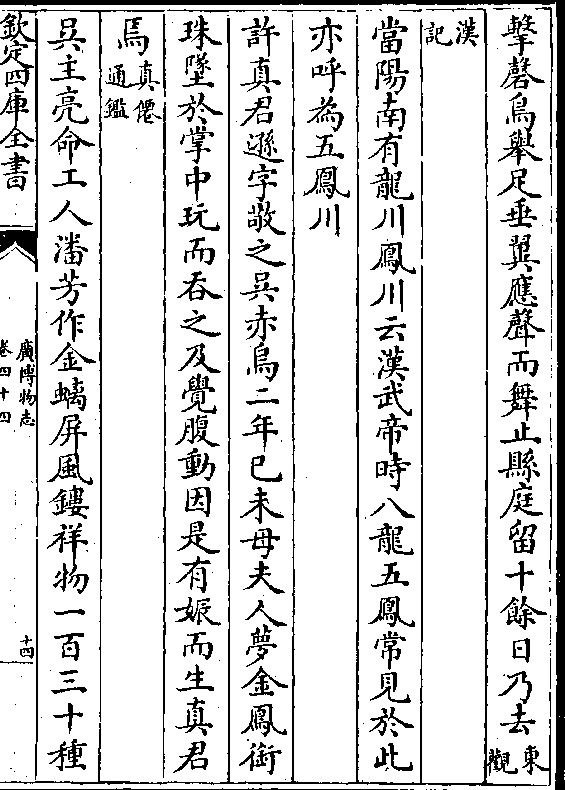 擊磬鳥舉足垂翼應聲而舞止縣庭留十餘日乃去東觀
漢記
當陽南有龍川鳳川云漢武帝時八龍五鳳常見於此
亦呼為五鳳川
許真君遜字敬之吳赤烏二年己未母夫人夢金鳳銜
珠墜於掌中玩而吞之及覺腹動因是有娠而生真君
焉真僊通鑑
吳主亮命工人潘芳作金螭屏風鏤祥物一百三十種
欽定四庫全書
廣博物志
卷四十四
十四